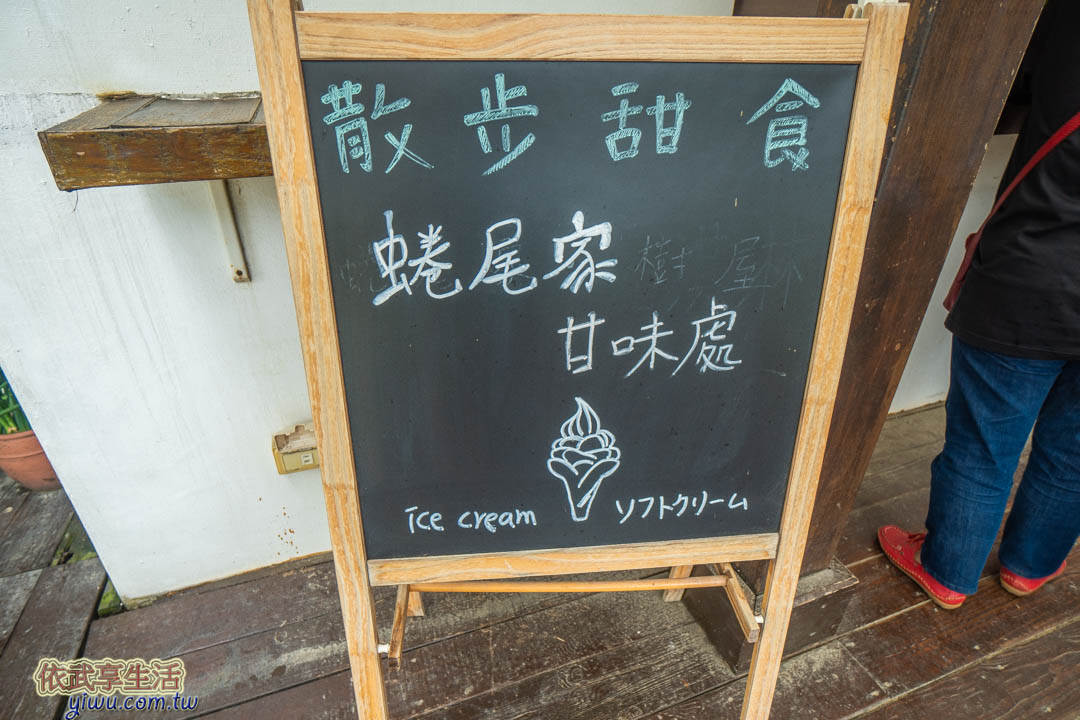 散步甜食
蜷尾家
甘味處
ice cream ソフトクリーム
依武享生活
yiwu.com.tw